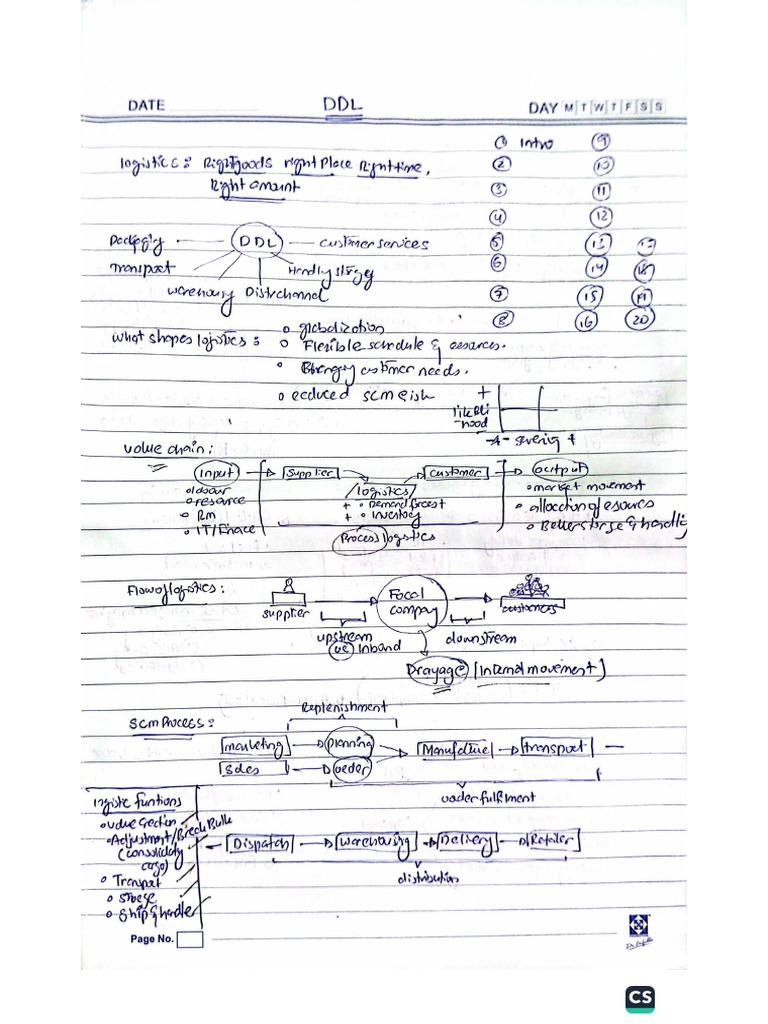 DATE
DDL
DAY M T W T F S S
Logistics: Right goods right place Right time,
Right amount
① Intro ⑨
② ⑩
③ ⑪
④ ⑫
⑤ ⑬ ⑰
⑥ ⑭ ⑱
⑦ ⑮ ⑲
⑧ ⑯ ⑳
DDL
Packaging
customer services
Transport
Warehousing Distr channel
What shapes logistics:
globalization
Flexible schedule &
customer needs.
reduced SCM risk
+
likeli
-hood
+
Value chain:
input
supplier
customer
output
labour
resource
RM
logistics
+ Demand forecast
+ inventory
Process logistics
market movement
allocation of
& handling
Flow of logistics:
supplier
Focal
company
customers
upstream
or inbound
downstream
Drayage [internal movement]
Replenishment
SCM PROCESS:
marketing
planning
Sales
order
Manufacture
transport
order fulfilment
logistic funtions
Adjustment/Break Bulk
(consolidate
cargo)
Transport
Dispatch
Warehousing
Delivery
Retailer
distribution
Page No.
CS